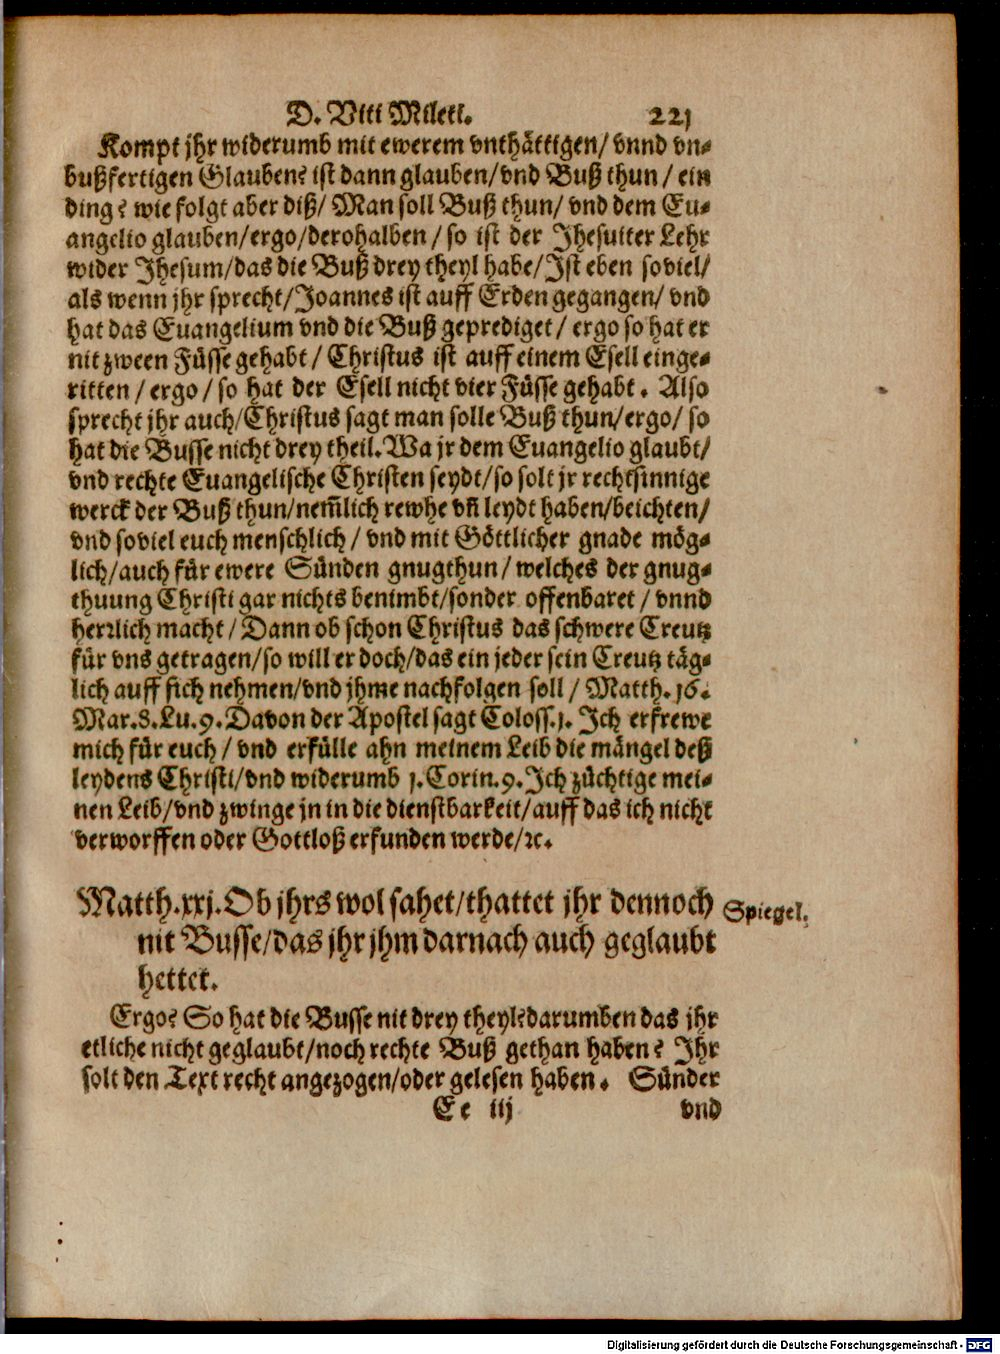 D. Viti Mileti. 221
Kompt jhr widerumb mit ewerem vnthättigen/ vnnd vn-
bußfertigen Glauben? ist dann glauben/vnd Buß thun / ein
ding? wie folgt aber diß/ Man soll Buß thun/ vnd dem Eu-
angelio glauben/ergo/derohalben / so ist der Jhesuiter Lehr
wider Jhesum/das die Buß drey theyl habe/Ist eben soviel/
als wenn jhr sprecht/Joannes ist auff Erden gegangen/ vnd
hat das Euangelium vnd die Buß geprediget / ergo so hat er
nit zween Füsse gehabt / Christus ist auff einem Esell einge-
ritten / ergo / so hat der Esell nicht vier Füsse gehabt. Also
sprecht jhr auch/Christus sagt man solle Buß thun/ergo/ so
hat die Busse nicht drey theil. Wa jr dem Euangelio glaubt/
vnd rechte Euangelische Christen seydt/so solt jr rechtsinnige
werck der Buß thun/nem̃lich rewhe vñ leydt haben/beichten/
vnd soviel euch menschlich / vnd mit Göttlicher gnade mög-
lich/auch für ewere Sünden gnugthun / welches der gnug-
thuung Christi gar nichts benimbt/sonder offenbaret / vnnd
herꝛlich macht / Dann ob schon Christus das schwere Creutz
für vns getragen/so will er doch/das ein jeder sein Creutz täg-
lich auff sich nehmen/vnd jhme nachfolgen soll / Matth. 16.
Mar. 8. Lu. 9. Davon der Apostel sagt Coloss. 1. Ich erfrewe
mich für euch / vnd erfülle ahn meinem Leib die mängel deß
leydens Christi/vnd widerumb 1. Corin. 9. Ich züchtige mei-
nen Leib/vnd zwinge jn in die dienstbarkeit/auff das ich nicht
verworffen oder Gottloß erfunden werde/ꝛc.
Matth. xxj. Ob jhrs wol sahet/thattet jhr dennoch
nit Busse/das jhr jhm darnach auch geglaubt
hettet.
Spiegel.
Ergo? So hat die Busse nit drey theyl? darumben das jhr
etliche nicht geglaubt/noch rechte Buß gethan haben? Ihr
solt den Text recht angezogen/oder gelesen haben. Sünder
Ee iij vnd
Digitalisierung gefördert durch die Deutsche Forschungsgemeinschaft - DFG